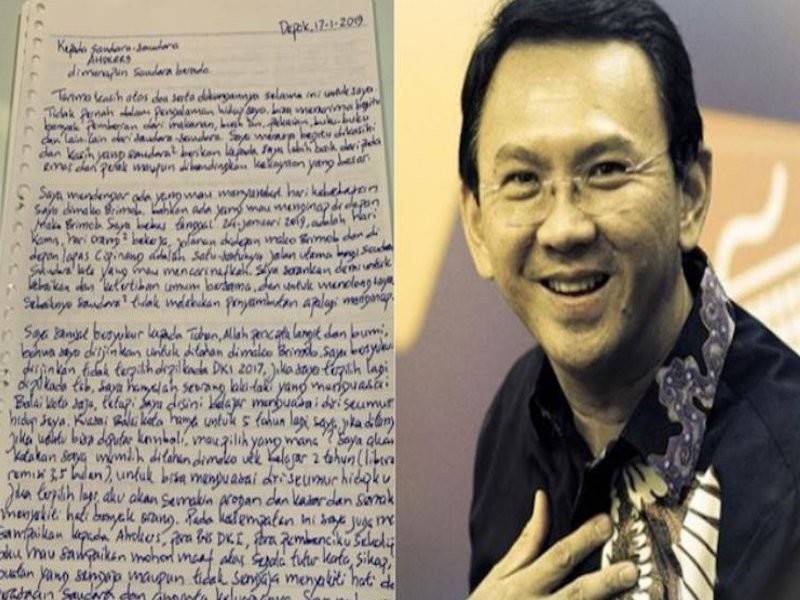 Depok, 17-1-2019
Kepada Saudara-saudara
AHOKERS
dimanapun saudara berada
Terima kasih atas doa serta dukungannya selama ini untuk saya
Tidak pernah dalam pengalaman hidup saya, bisa menerima begitu
banyak pemberian dari makanan, buah<sup>2</sup>an, pakaian, buku-buku
dan lain-lain dari saudara-saudara. Saya merasa begitu dikasihi
dan kasih yang saudara<sup>2</sup> berikan kepada saya lebih baik dari pada
emas dan perak maupun dibandingkan kekayaan yang besar.
Saya mendengar ada yang mau menyambut hari kebebasan
saya dimako Brimob, bahkan ada yang mau menginap di depan
Mako Brimob. Saya bebas tanggal 24 januari 2019, adalah hari
kamis, hari orang<sup>2</sup> bekerja, jalanan di depan mako Brimob dan di
depan lapas Cipinang adalah satu-satunya jalan utama bagi saudara
saudara kita yang mau mencari nafkah. Saya sarankan demi untuk
kebaikan dan ketertiban umum bersama, dan untuk menolong saya
sebaiknya saudara<sup>2</sup> tidak melakukan penyambutan apalagi menginap.
Saya sangat bersyukur kepada Tuhan, Allah pencipta langit dan bumi,
bahwa saya diijinkan untuk ditahan dimako Brimob. Saya bersyukur
diijinkan tidak terpilih di pilkada DKI 2017, jika saya terpilih lagi
di pilkada tsb, saya hanyalah seorang laki-laki yang menguasai
Balai kota saja, tetapi saya disini belajar menguasai diri seumur
hidup saya. Kuasai Balai kota hanya untuk 5 tahun lagi saya, jika ditanya
jika waktu bisa diputar kembali, mau pilih yang mana? Saya akan
katakan saya memilih ditahan dimako utk belajar 2 tahun (
remisi 3,5 bulan), untuk bisa menguasai diri seumur hidupku
jika terpilih lagi, aku akan semakin arogan dan kasar dan semakin
menyakiti hati banyak orang. Pada kesempatan ini saya juga
sampaikan kepada Ahokers, para PNS DKI, para pembenciku sekalipun
aku mau sampaikan mohon maaf atas segala tutur kata, sikap,
buatan yang sengaja maupun tidak sengaja menyakiti hati
perasaan saudara dan anggota keluarganya.